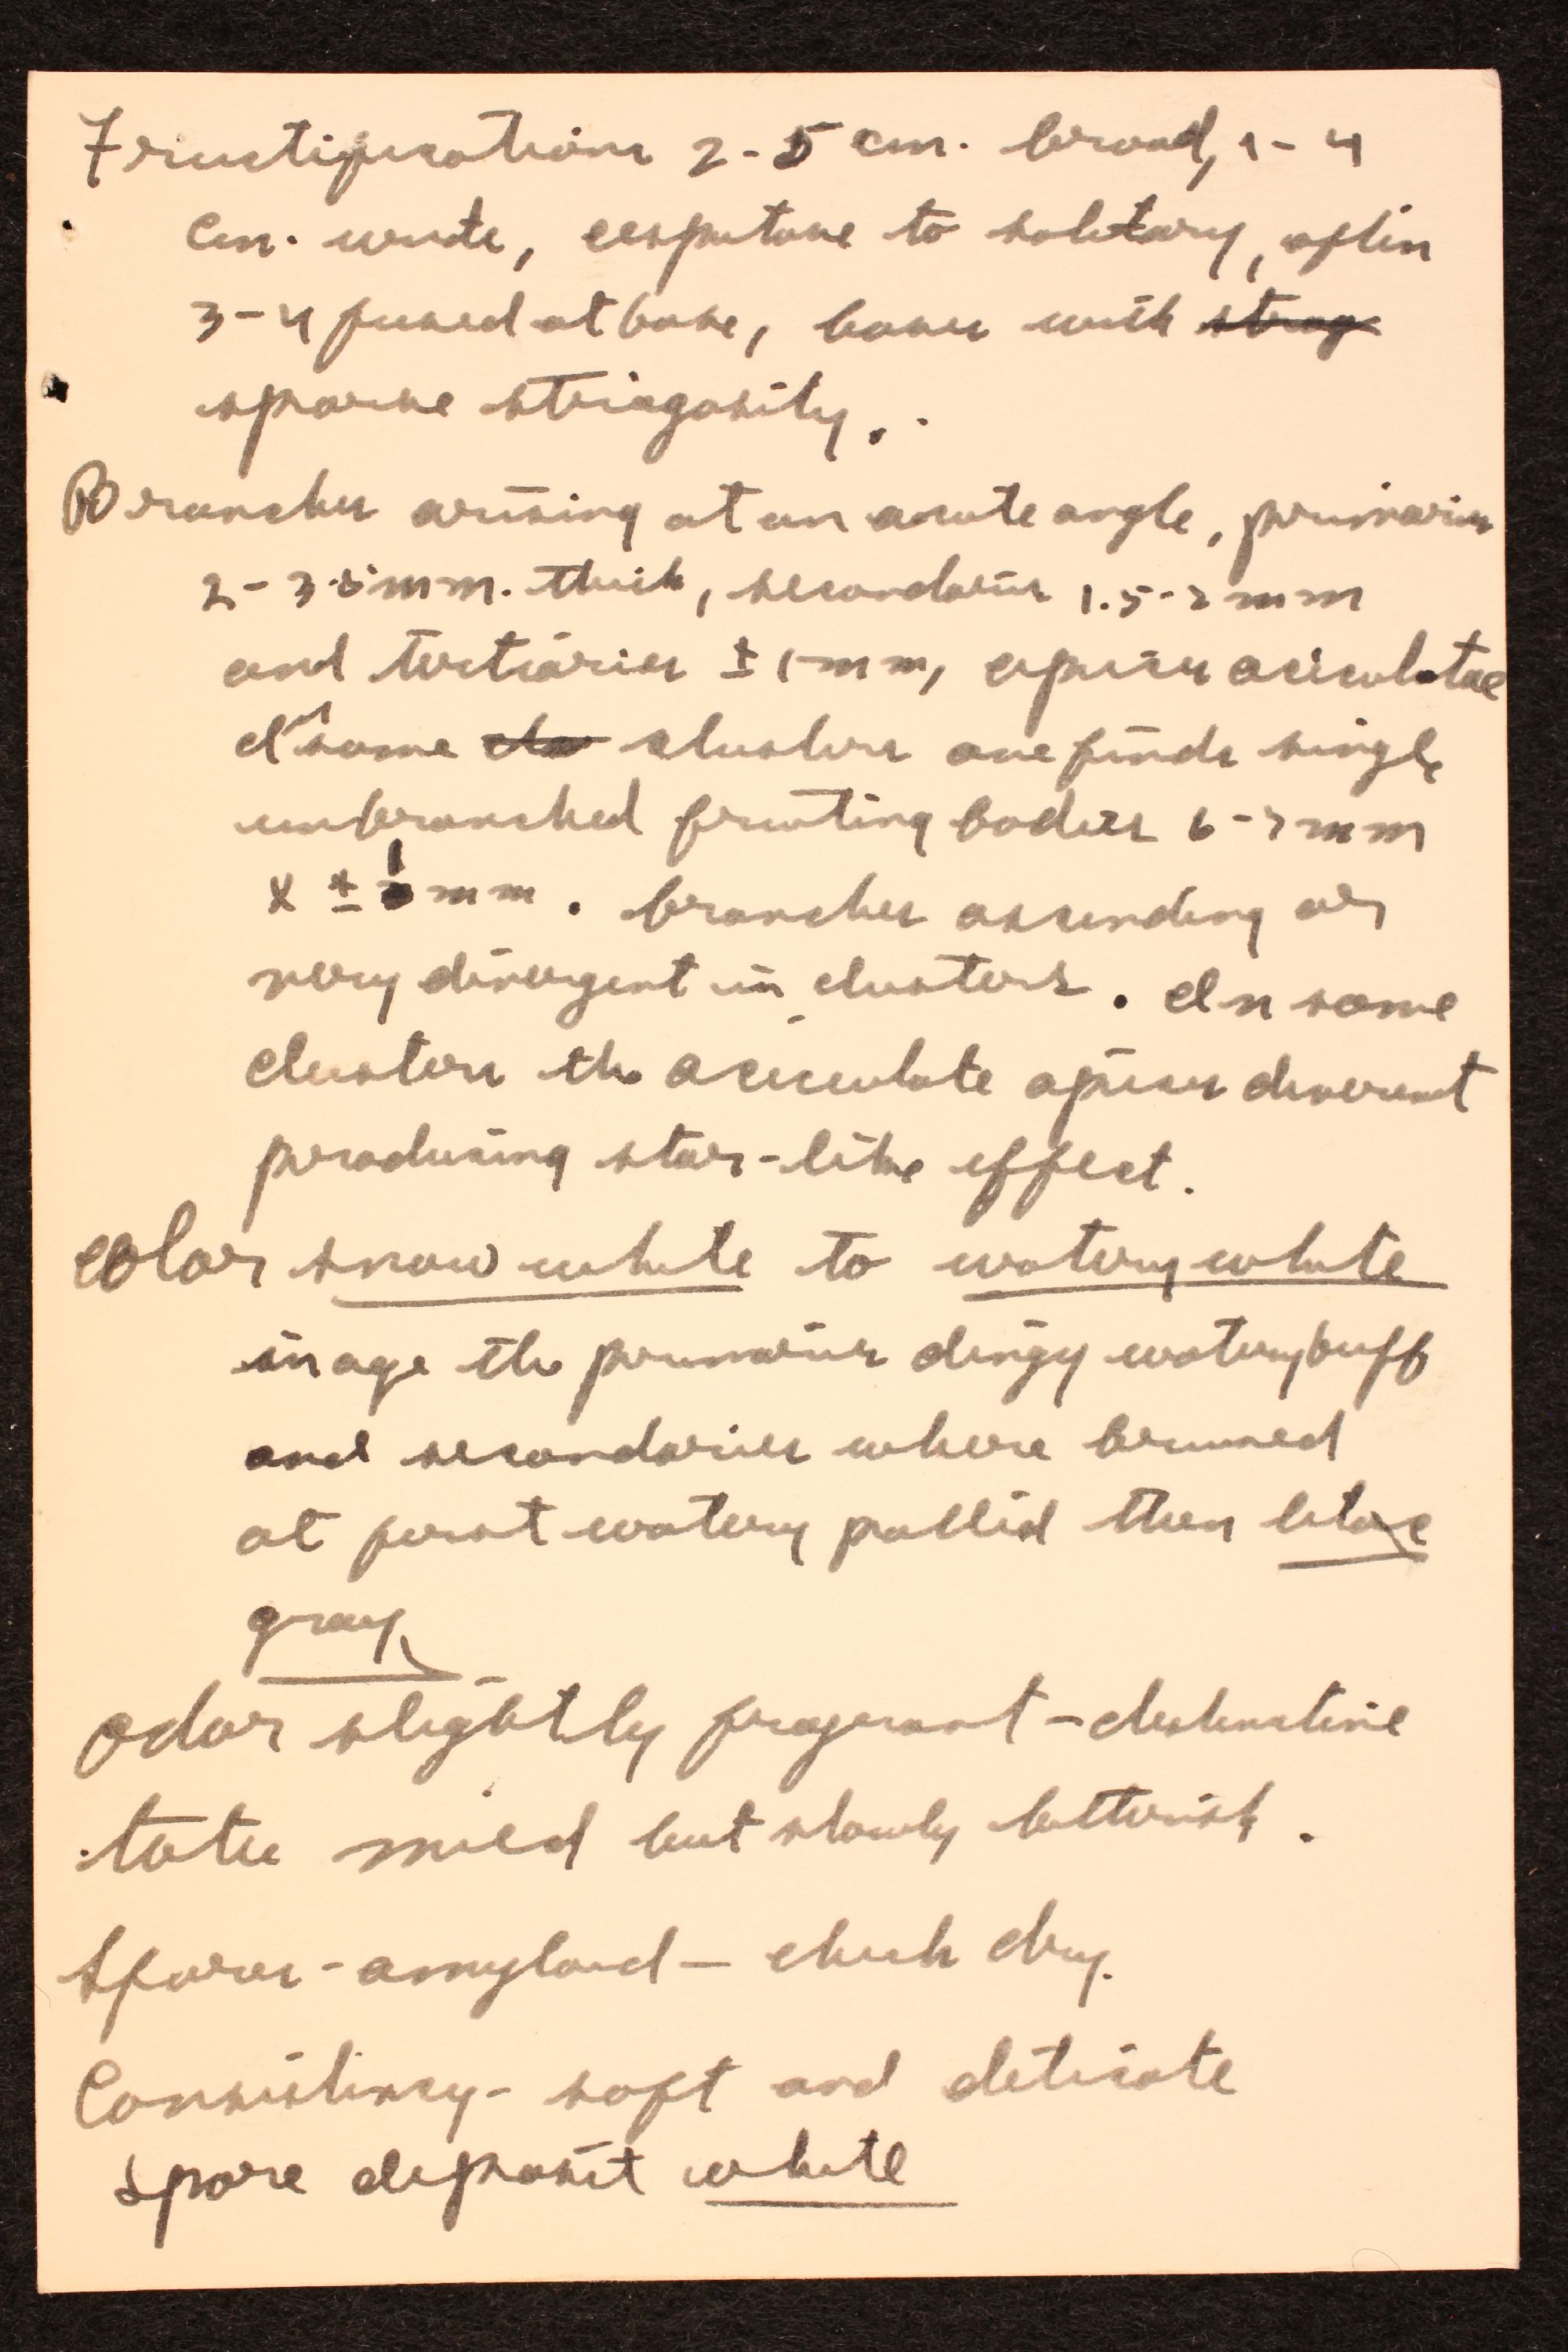 Fructifications 2-5 cm. broad, 1-4
cm. wide, cespitose to solitary, often
3-4 fused at base, bases with strag
sparse strigosity.
Branches arising at an acute angle, primaries
2-3.5 mm. thick, secondaries 1.5-2 mm
and tertiaries ± 1 mm, apices aciculatae
In some clu clusters one finds single
unbranched fruiting bodies 6-7 mm
x ± 1 mm. branches ascending or
very divergent in clusters. In some
clusters the aciculate apices
producing star-like effect.
Color snow white to watery white
in age the primaries dingy watery buff
and secondaries where
at first watery pallid then lilac
gray
Odor slightly fragrant - distinctive
taste mild but slowly bitterish.
Spores - amyloid - check dry.
Consistency - soft and delicate
Spore deposit white